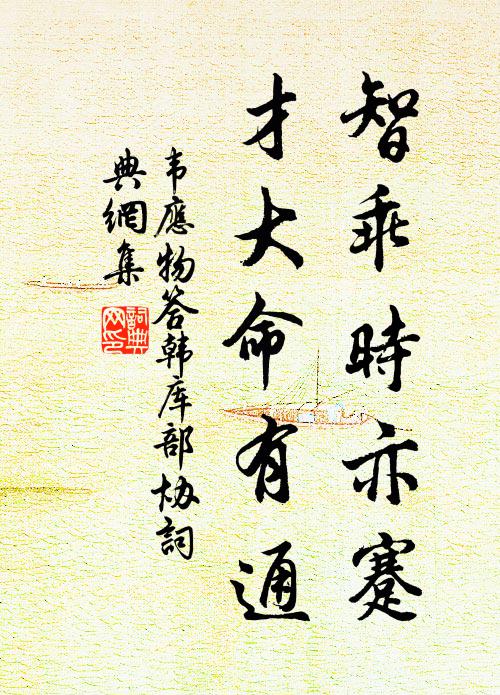 智乖時亦蹇
才大命有通
韦應物答韩库部协詞
典網集
詞典
网印